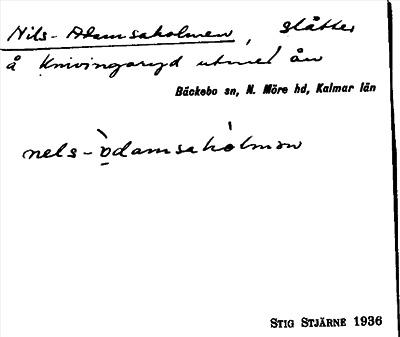 Nils-Adamsakolmen, slåtter
å Knivingaryd utmed ån
Bäckebo sn, N. Möre hd, Kalmar län
nels-òdamsakòlmən
STIG STJÄRNE 1936